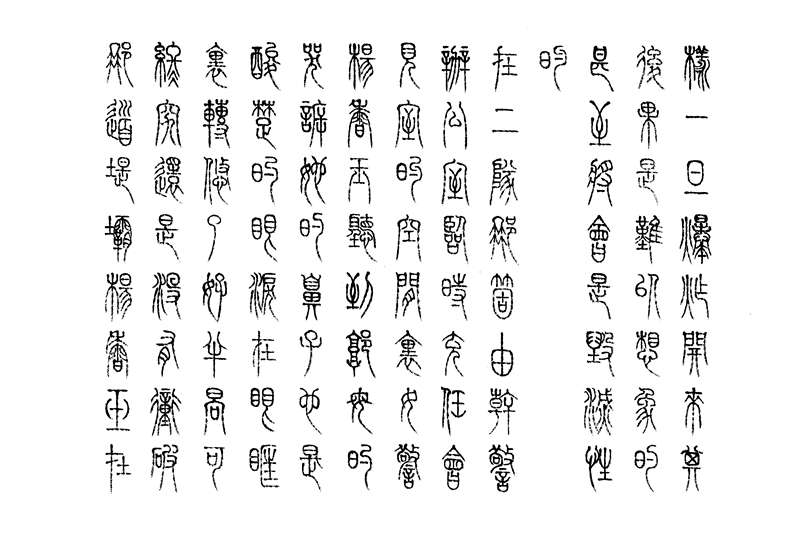 樣一旦爆炸開來其
後果是難以想象的
甚至將會是毀滅性
的
在二隊那箇由幹警
辦公室臨時充任會
見室的空間裏女警
楊香玉聽到郭母的
哭訴她的鼻子也是
酸楚的眼淚在眼眶
裏轉悠了好半晌可
終究還是沒有衝破
那道堤壩楊香玉在